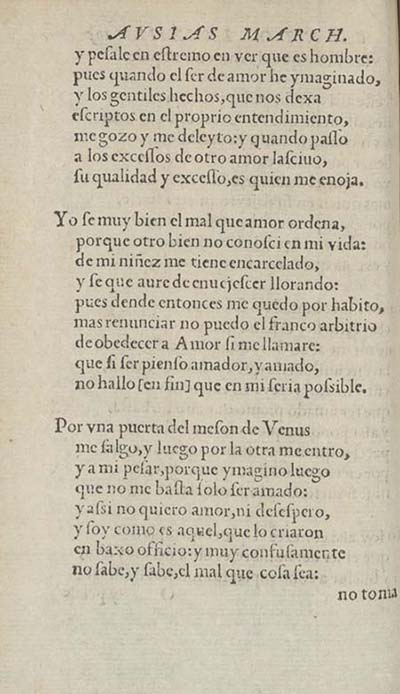 AVSIAS MARCH.
y peſale en eſtremo en ver que es hombre:
pues quando el ſer de amor he ymaginado,
y los gentiles hechos, que nos dexa
eſcriptos en el proprio entendimiento,
me gozo y me deleyto: y quando paſſo
a los exceſſos de otro amor laſciuo,
ſu qualidad y exceſſo, es quien me enoja.
Yo ſe muy bien el mal que amor ordena,
porque otro bien no conoſci en mi vida:
de mi niñez me tiene encarcelado,
y ſe que aure de enuejeſcer llorando:
pues dende entonces me quedo por habito,
mas renunciar no puedo el franco arbitrio
de obedecer a Amor ſi me llamare:
que ſi ſer pienſo amador, y amado,
no hallo [en fin] que en mi ſeria poſsible.
Por vna puerta del meſon de Venus
me ſalgo, y luego por la otra me entro,
y a mi peſar, porque ymagino luego
que no me baſta ſolo ſer amado:
y aſsi no quiero amor, ni deſeſpero,
y ſoy como es aquel, que lo criaron
en baxo officio: y muy confuſamente
no ſabe, y ſabe, el mal que coſa ſea:
no toma